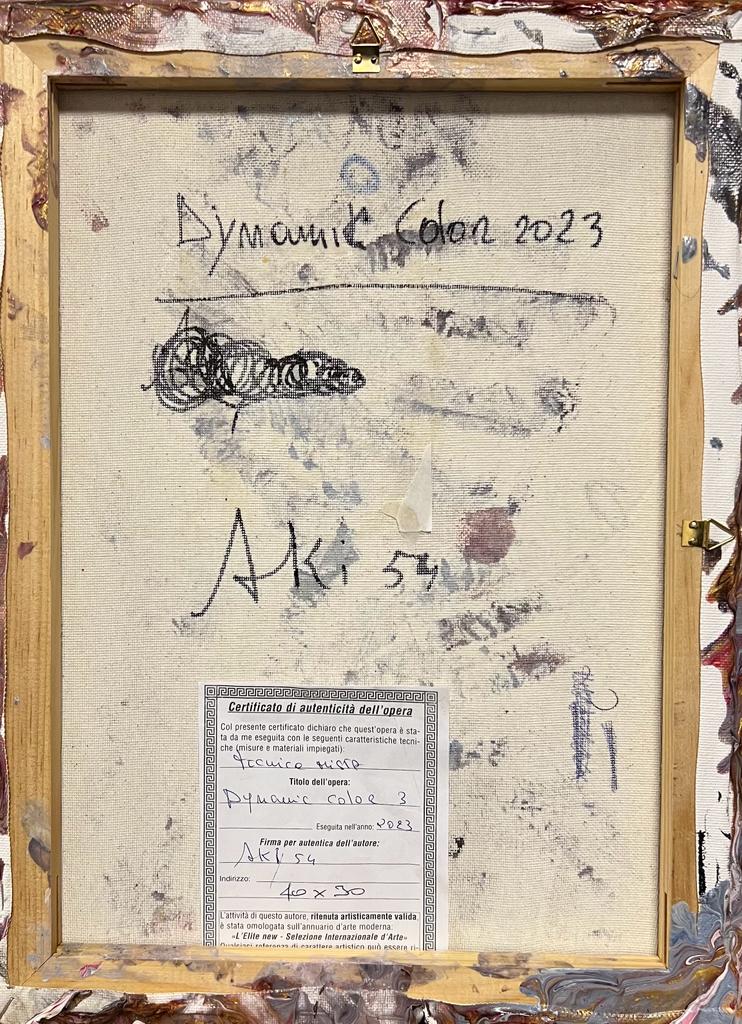 Dynamic Color 2023
Aki 54
Certificato di autenticità dell'opera
Col presente certificato dichiaro che quest'opera è sta-
ta da me eseguita con le seguenti caratteristiche tecni-
che (misure e materiali impiegati):
tecnica mista
Titolo dell'opera:
Dynamic color 3
Eseguita nell'anno: 2023
Firma per autentica dell'autore:
Aki 54
Indirizzo:
40 x 30
L'attività di questo autore, ritenuta artisticamente valida,
è stata omologata sull'annuario d'arte moderna:
«L'Elite new - Selezione Internazionale d'Arte»
Qualsiasi referenza di carattere artistico può essere ri-